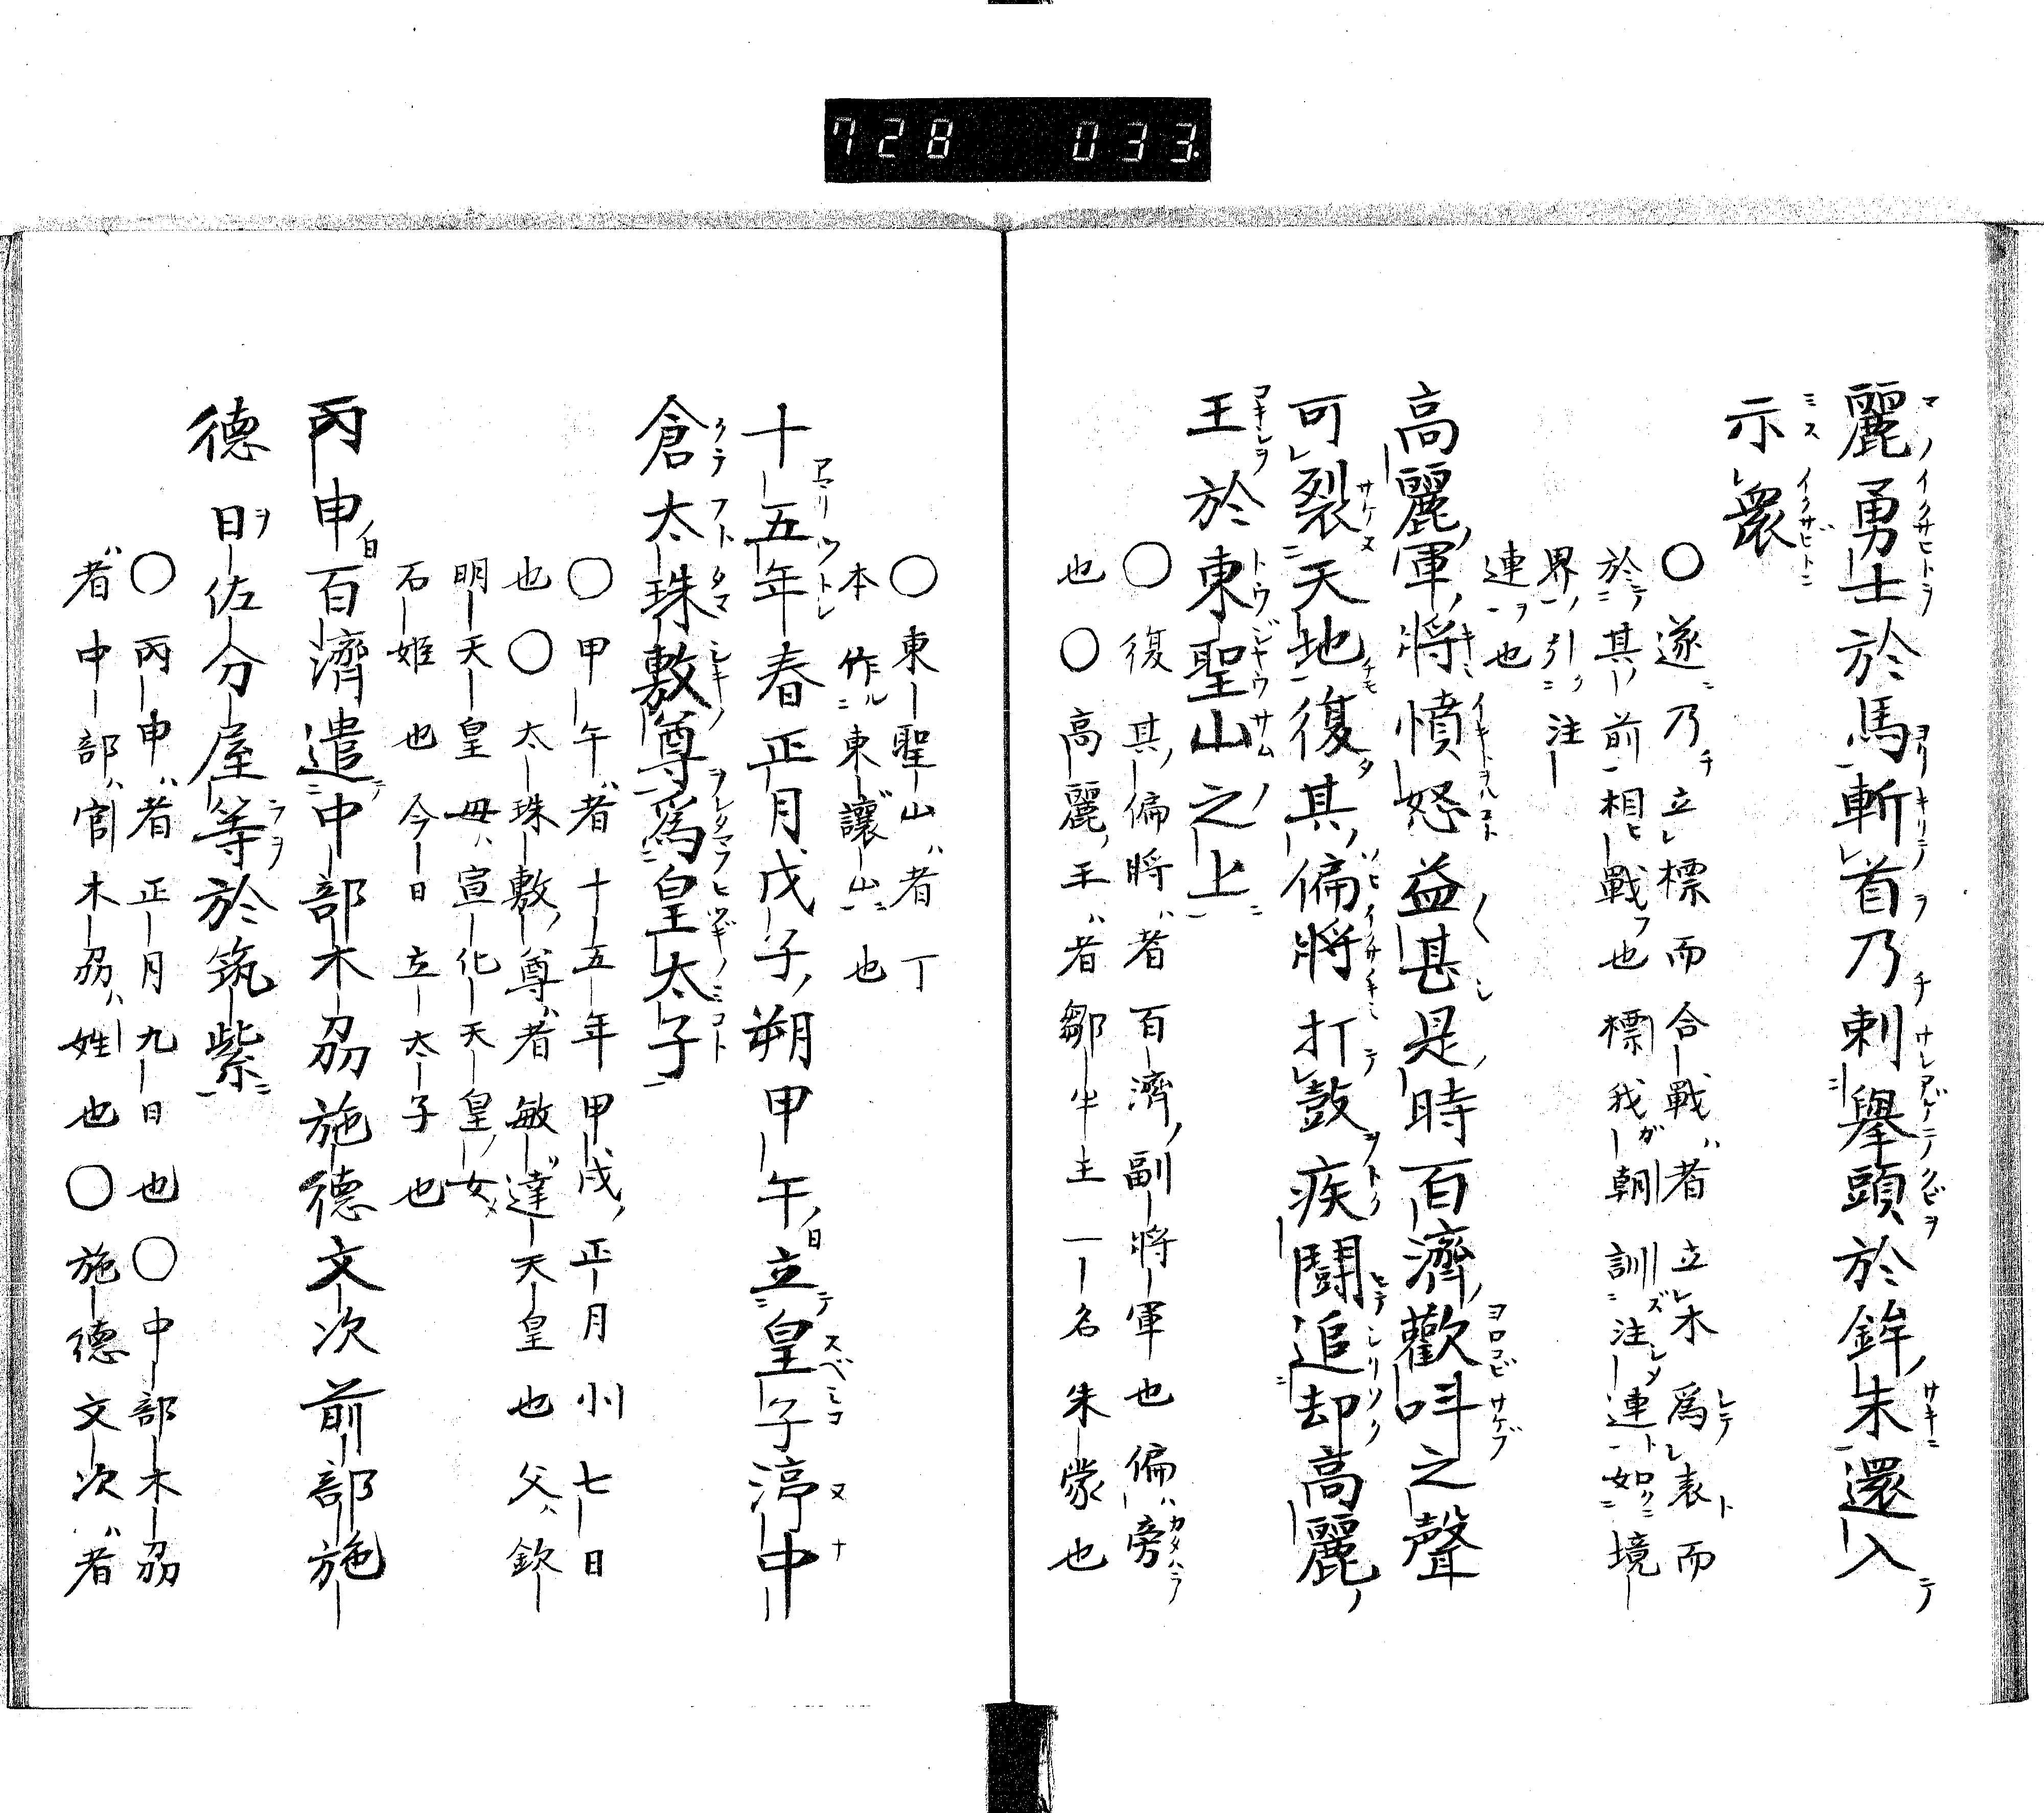 728 033
麗勇士於馬斬首乃刺擧頭於鉾末還入
示衆
○遂乃立標而合戰者立木爲表而
於其前相戰也標我朝訓注連如境
界引注
連也
高麗軍將憤怒益甚是時百濟歡呌之聲
可裂天地復其偏將打鼓疾鬪追却高麗
王於東聖山之上
○復其偏將者百濟副將軍也偏旁
也○高麗王者鄒牟主一名朱蒙也
○東聖山者丁
本作東讓山也
十五年春正月戊子朔甲午立皇子渟中
倉太珠敷尊爲皇太子
○甲午者十五年甲戌正月小七日
也○太珠敷尊者敏達天皇也父欽
明天皇母宣化天皇女
石姫也今日立太子也
丙申百濟遣中部木刕施德文次前部施
德日佐分屋等於筑紫
○丙申者正月九日也○中部木刕
者中部官木刕姓也○施德文次者